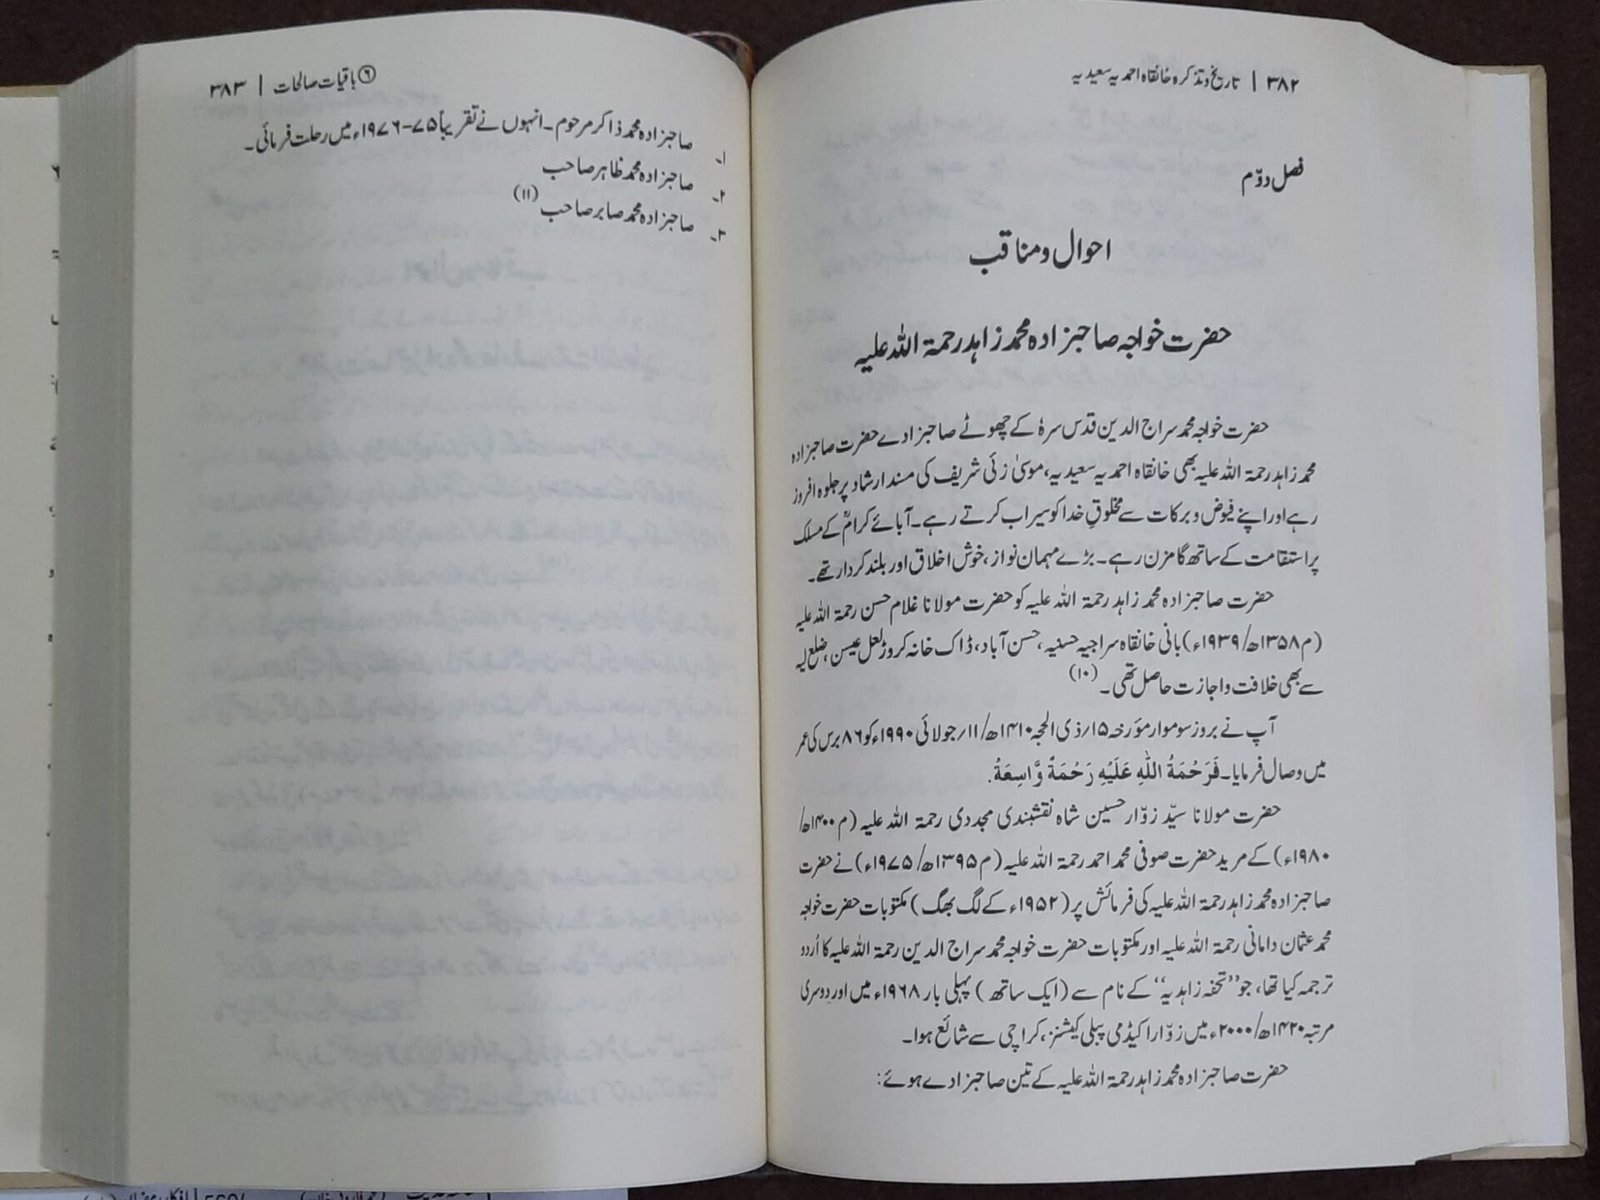 ۳۸۲ | تاریخ و تذکرہ خانقاہ احمدیہ سعیدیہ
فصل دوّم
احوال و مناقب
حضرت خواجہ صاحبزادہ محمد زاہد رحمۃ اللہ علیہ
حضرت خواجہ محمد سراج الدین قدس سرہٗ کے چھوٹے صاحبزادے حضرت صاحبزادہ
محمد زاہد رحمۃ اللہ علیہ بھی خانقاہ احمدیہ سعیدیہ، موسیٰ زئی شریف کی مسند ارشاد پر جلوہ افروز
رہے اور اپنے فیوض و برکات سے مخلوقِ خدا کو سیراب کرتے رہے۔ آبائے کرامؒ کے مسلک
پر استقامت کے ساتھ گامزن رہے۔ بڑے مہمان نواز، خوش اخلاق اور بلند کردار تھے۔
حضرت صاحبزادہ محمد زاہد رحمۃ اللہ علیہ کو حضرت مولانا غلام حسن رحمۃ اللہ علیہ
(م ۱۳۵۸ھ/۱۹۳۹ء) بانی خانقاہ سراجیہ حسنیہ، حسن آباد، ڈاک خانہ کروڑ لعل عیسن، ضلع لیہ
سے بھی خلافت و اجازت حاصل تھی۔(۱۰)
آپ نے بروز سوموار مؤرخہ ۱۵/ذی الحجہ ۱۴۱۰ھ/۱۱/جولائی ۱۹۹۰ء کو ۸۶ برس کی عمر
میں وصال فرمایا۔ فَرَحْمَةُ اللهِ عَلَيْهِ رَحْمَةً وَّاسِعَةً.
حضرت مولانا سیّد زوّار حسین شاہ نقشبندی مجددی رحمۃ اللہ علیہ (م ۱۴۰۰ھ/
۱۹۸۰ء) کے مرید حضرت صوفی محمد احمد رحمۃ اللہ علیہ (م ۱۳۹۵ھ/۱۹۷۵ء) نے حضرت
صاحبزادہ محمد زاہد رحمۃ اللہ علیہ کی فرمائش پر (۱۹۵۲ء کے لگ بھگ) مکتوبات حضرت خواجہ
محمد عثمان دامانی رحمۃ اللہ علیہ اور مکتوبات حضرت خواجہ محمد سراج الدین رحمۃ اللہ علیہ کا اُردو
ترجمہ کیا تھا، جو ’’تحفہ زاہدیہ‘‘ کے نام سے (ایک ساتھ) پہلی بار ۱۹۶۸ء میں اور دوسری
مرتبہ ۱۴۲۰ھ/۲۰۰۰ء میں زوّار اکیڈمی پبلی کیشنز، کراچی سے شائع ہوا۔
حضرت صاحبزادہ محمد زاہد رحمۃ اللہ علیہ کے تین صاحبزادے ہوئے:
۶ باقیات صالحات | ۳۸۳
۱۔ صاحبزادہ محمد ذاکر مرحوم۔ انہوں نے تقریباً ۷۵-۱۹۷۶ء میں رحلت فرمائی۔
۲۔ صاحبزادہ محمد ظاہر صاحب
۳۔ صاحبزادہ محمد صابر صاحب (۱۱)